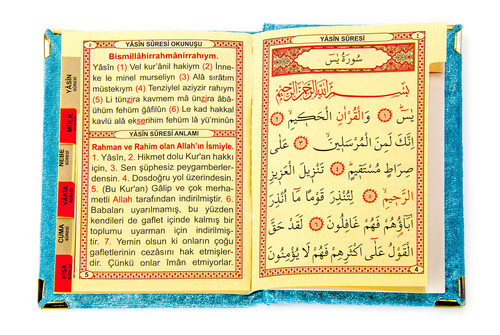 YÂSÎN SÛRESİ OKUNUŞU
Bismillâhirrahmânirrahıym.
Yâsîn (1) Vel kur'ânil hakiym (2) İnne-
ke le minel murseliyn (3) Alâ sırâtım
müstekıym (4) Tenziylel aziyzir rahiym
(5) Li tünzira kavmem mâ ünzira âbâ-
ühüm fehüm ğâfilûn (6) Le kad hakkal
kavlü alâ ekserihim fehüm lâ yü'minûn
YÂSÎN SÛRESİ ANLAMI
Rahman ve Rahim olan Allah'ın İsmiyle.
1. Yâsîn, 2. Hikmet dolu Kur'an hakkı
için, 3. Sen şüphesiz peygamberler-
densin. 4. Dosdoğru yol üzerindesin.
5. (Bu Kur'an) Gâlip ve çok merha-
metli Allah tarafından indirilmiştir. 6.
Babaları uyarılmamış, bu yüzden
kendileri de gaflet içinde kalmış bir
toplumu uyarman için indirilmiş-
tir. 7. Yemin olsun ki onların çoğu
gafletlerinin cezasını hak etmişler-
dir. Çünkü onlar îman etmiyorlar.
5
YÂSÎN SÛRESİ
MÜLK
NEBE SÛRESİ
VAKIA
CUMA SÛRESİ
KISA
YÂSÎN SÛRESİ
سُورَةُ يٰسٓ
بِسْمِ اللّٰهِ الرَّحْمٰنِ الرَّحِيمِ
يٰسٓ ﴿١﴾ وَالْقُرْاٰنِ الْحَكِيمِ ﴿٢﴾
اِنَّكَ لَمِنَ الْمُرْسَلِينَ ﴿٣﴾ عَلٰى
صِرَاطٍ مُسْتَقِيمٍ ﴿٤﴾ تَنْزِيلَ الْعَزِيزِ
الرَّحِيمِ ﴿٥﴾ لِتُنْذِرَ قَوْمًا مَا اُنْذِرَ
اٰبَاؤُهُمْ فَهُمْ غَافِلُونَ ﴿٦﴾ لَقَدْ حَقَّ
الْقَوْلُ عَلٰٓى اَكْثَرِهِمْ فَهُمْ لَا يُؤْمِنُونَ
4